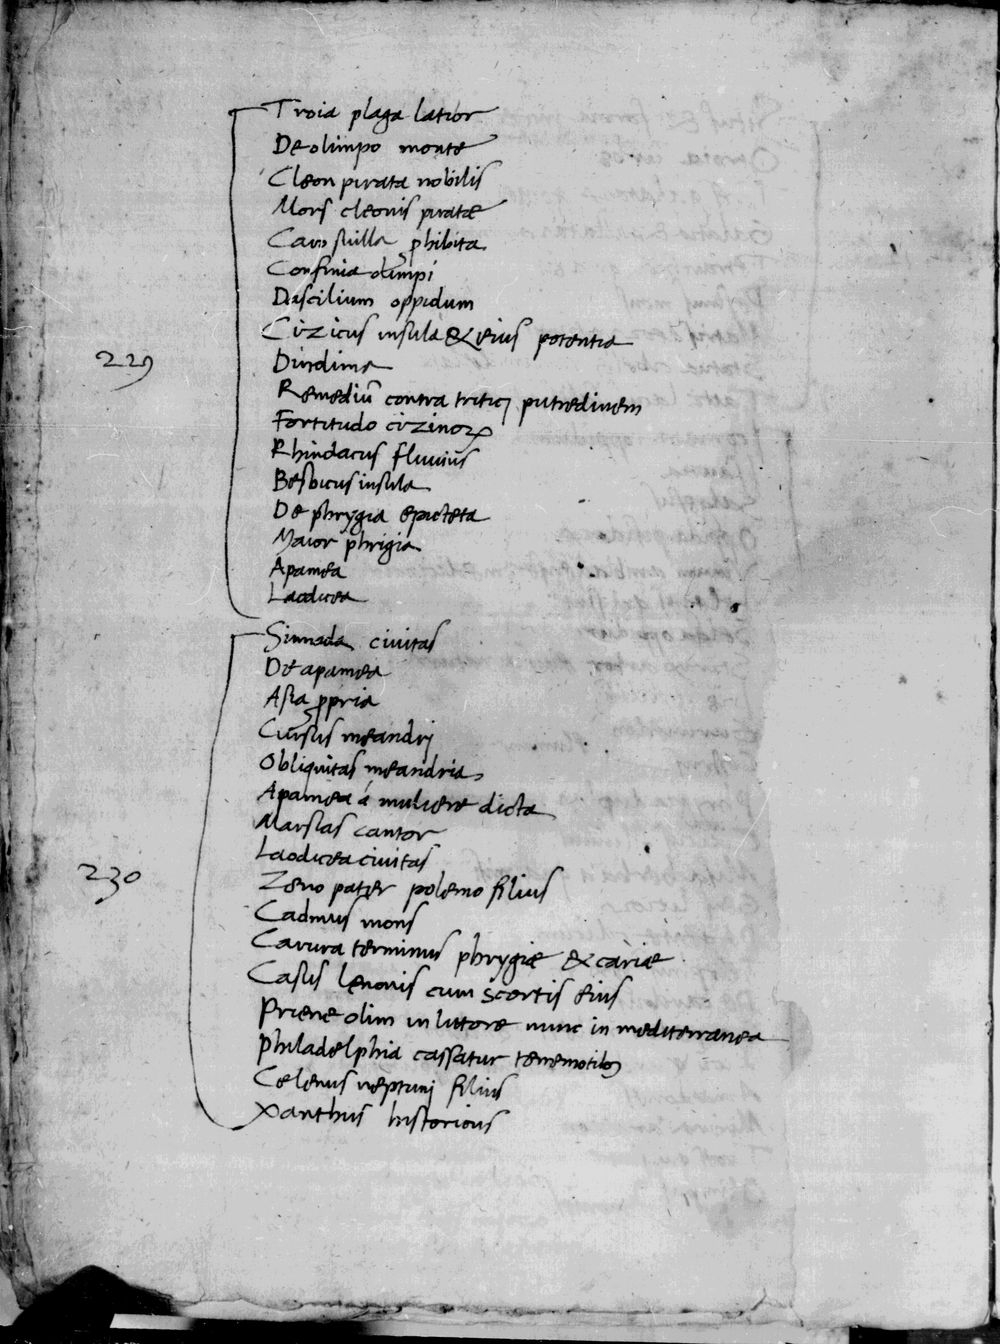 Troia plaga latior
De olimpo monte
Cleon pirata nobilis
Mors cleonis piratæ
Confinia olimpi
Dascilium oppidum
Cizicus insula & eius potentia
229
Dindima
Remediũ contra tritici putredinem
Fortitudo cizinoꝝ
Rhindacus fluuius
Besbicus insula
De phrygia epicteta
Maior phrigia
Apamea
Laodicea
Sinnada ciuitas
De apamea
Asia ꝓpria
Cursus meandrj
Obliquitas meandria
Apamea á muliere dicta
Marsias cantor
Laodicea ciuitas
230
Zeno pater polemo filius
Cadmus mons
Carura terminus phrygiæ & cariæ
Casus lęnonis cum scortis eius
Priene olim in littore nunc in mediterranea
Philadelphia cassatur terremotibꝫ
Celenus neptunj filius
Xanthus historicus